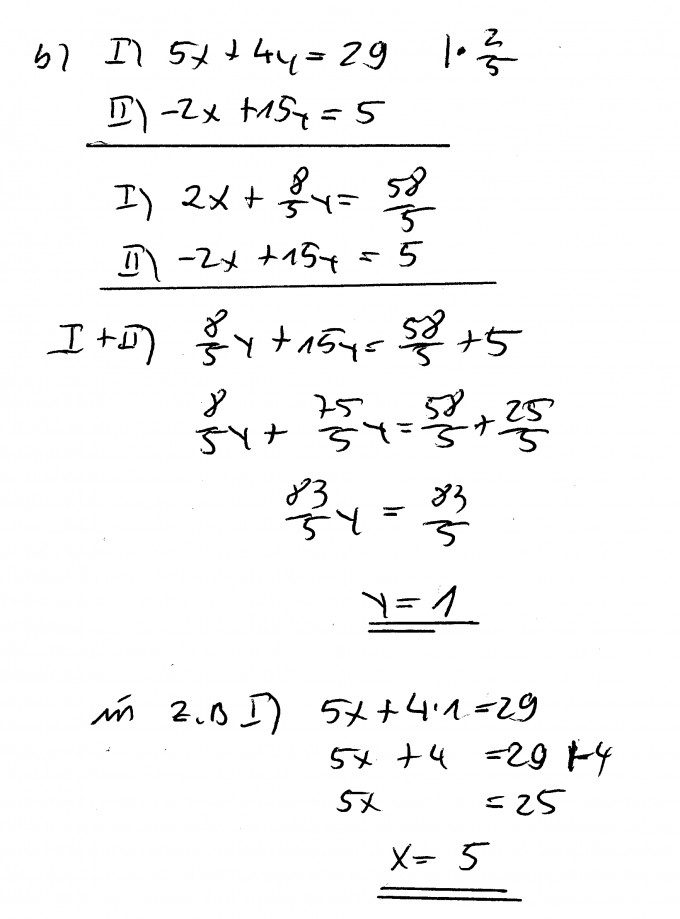 b) I) 5x + 4y = 29 | · 2/5
II) -2x + 15y = 5
I) 2x + 8/5 y = 58/5
II) -2x + 15y = 5
I + II) 8/5 y + 15y = 58/5 + 5
8/5 y + 75/5 y = 58/5 + 25/5
83/5 y = 83/5
y = 1
in z.B I) 5x + 4·1 = 29
5x + 4 = 29 |-4
5x = 25
x = 5